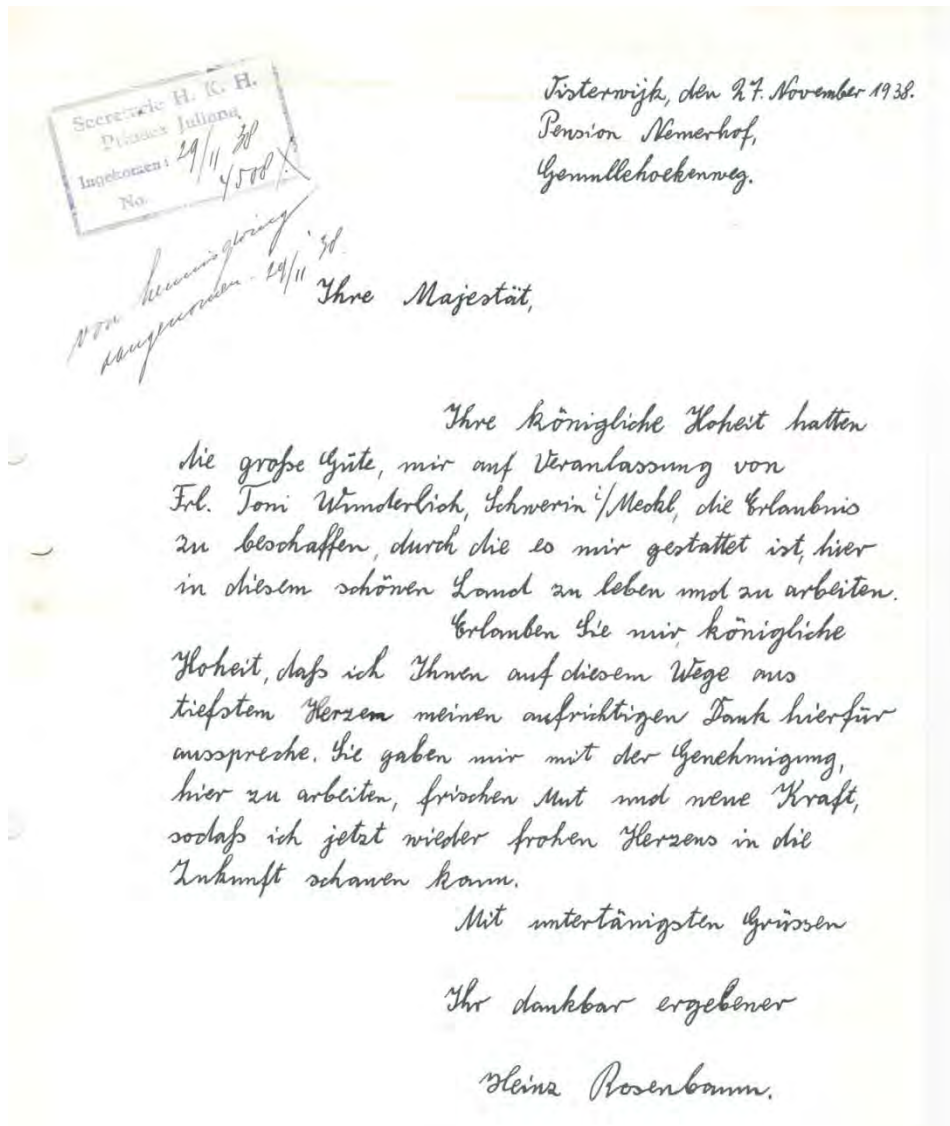 Secretarie H. K. H.
Prinses Juliana
Ingekomen: 29/11 38
No. 4508/
von kennisgeving
aangenomen. 29/11 '38.
Tisterwijk, den 27. November 1938.
Pension Nemerhof,
Gemullehoekenweg.
Ihre Majestät,
Ihre königliche Hoheit hatten
die große Güte, mir auf Veranlassung von
Frl. Toni Wunderlich, Schwerin i/Meckl, die Erlaubnis
zu beschaffen, durch die es mir gestattet ist, hier
in diesem schönen Land zu leben und zu arbeiten.
Erlauben Sie mir, königliche
Hoheit, daß ich Ihnen auf diesem Wege aus
tiefstem Herzen meinen aufrichtigen Dank hierfür
ausspreche. Sie gaben mir mit der Genehmigung,
hier zu arbeiten, frischen Mut und neue Kraft,
sodaß ich jetzt wieder frohen Herzens in die
Zukunft schauen kann.
Mit untertänigsten Grüssen
Ihr dankbar ergebener
Heinz Rosenbaum.